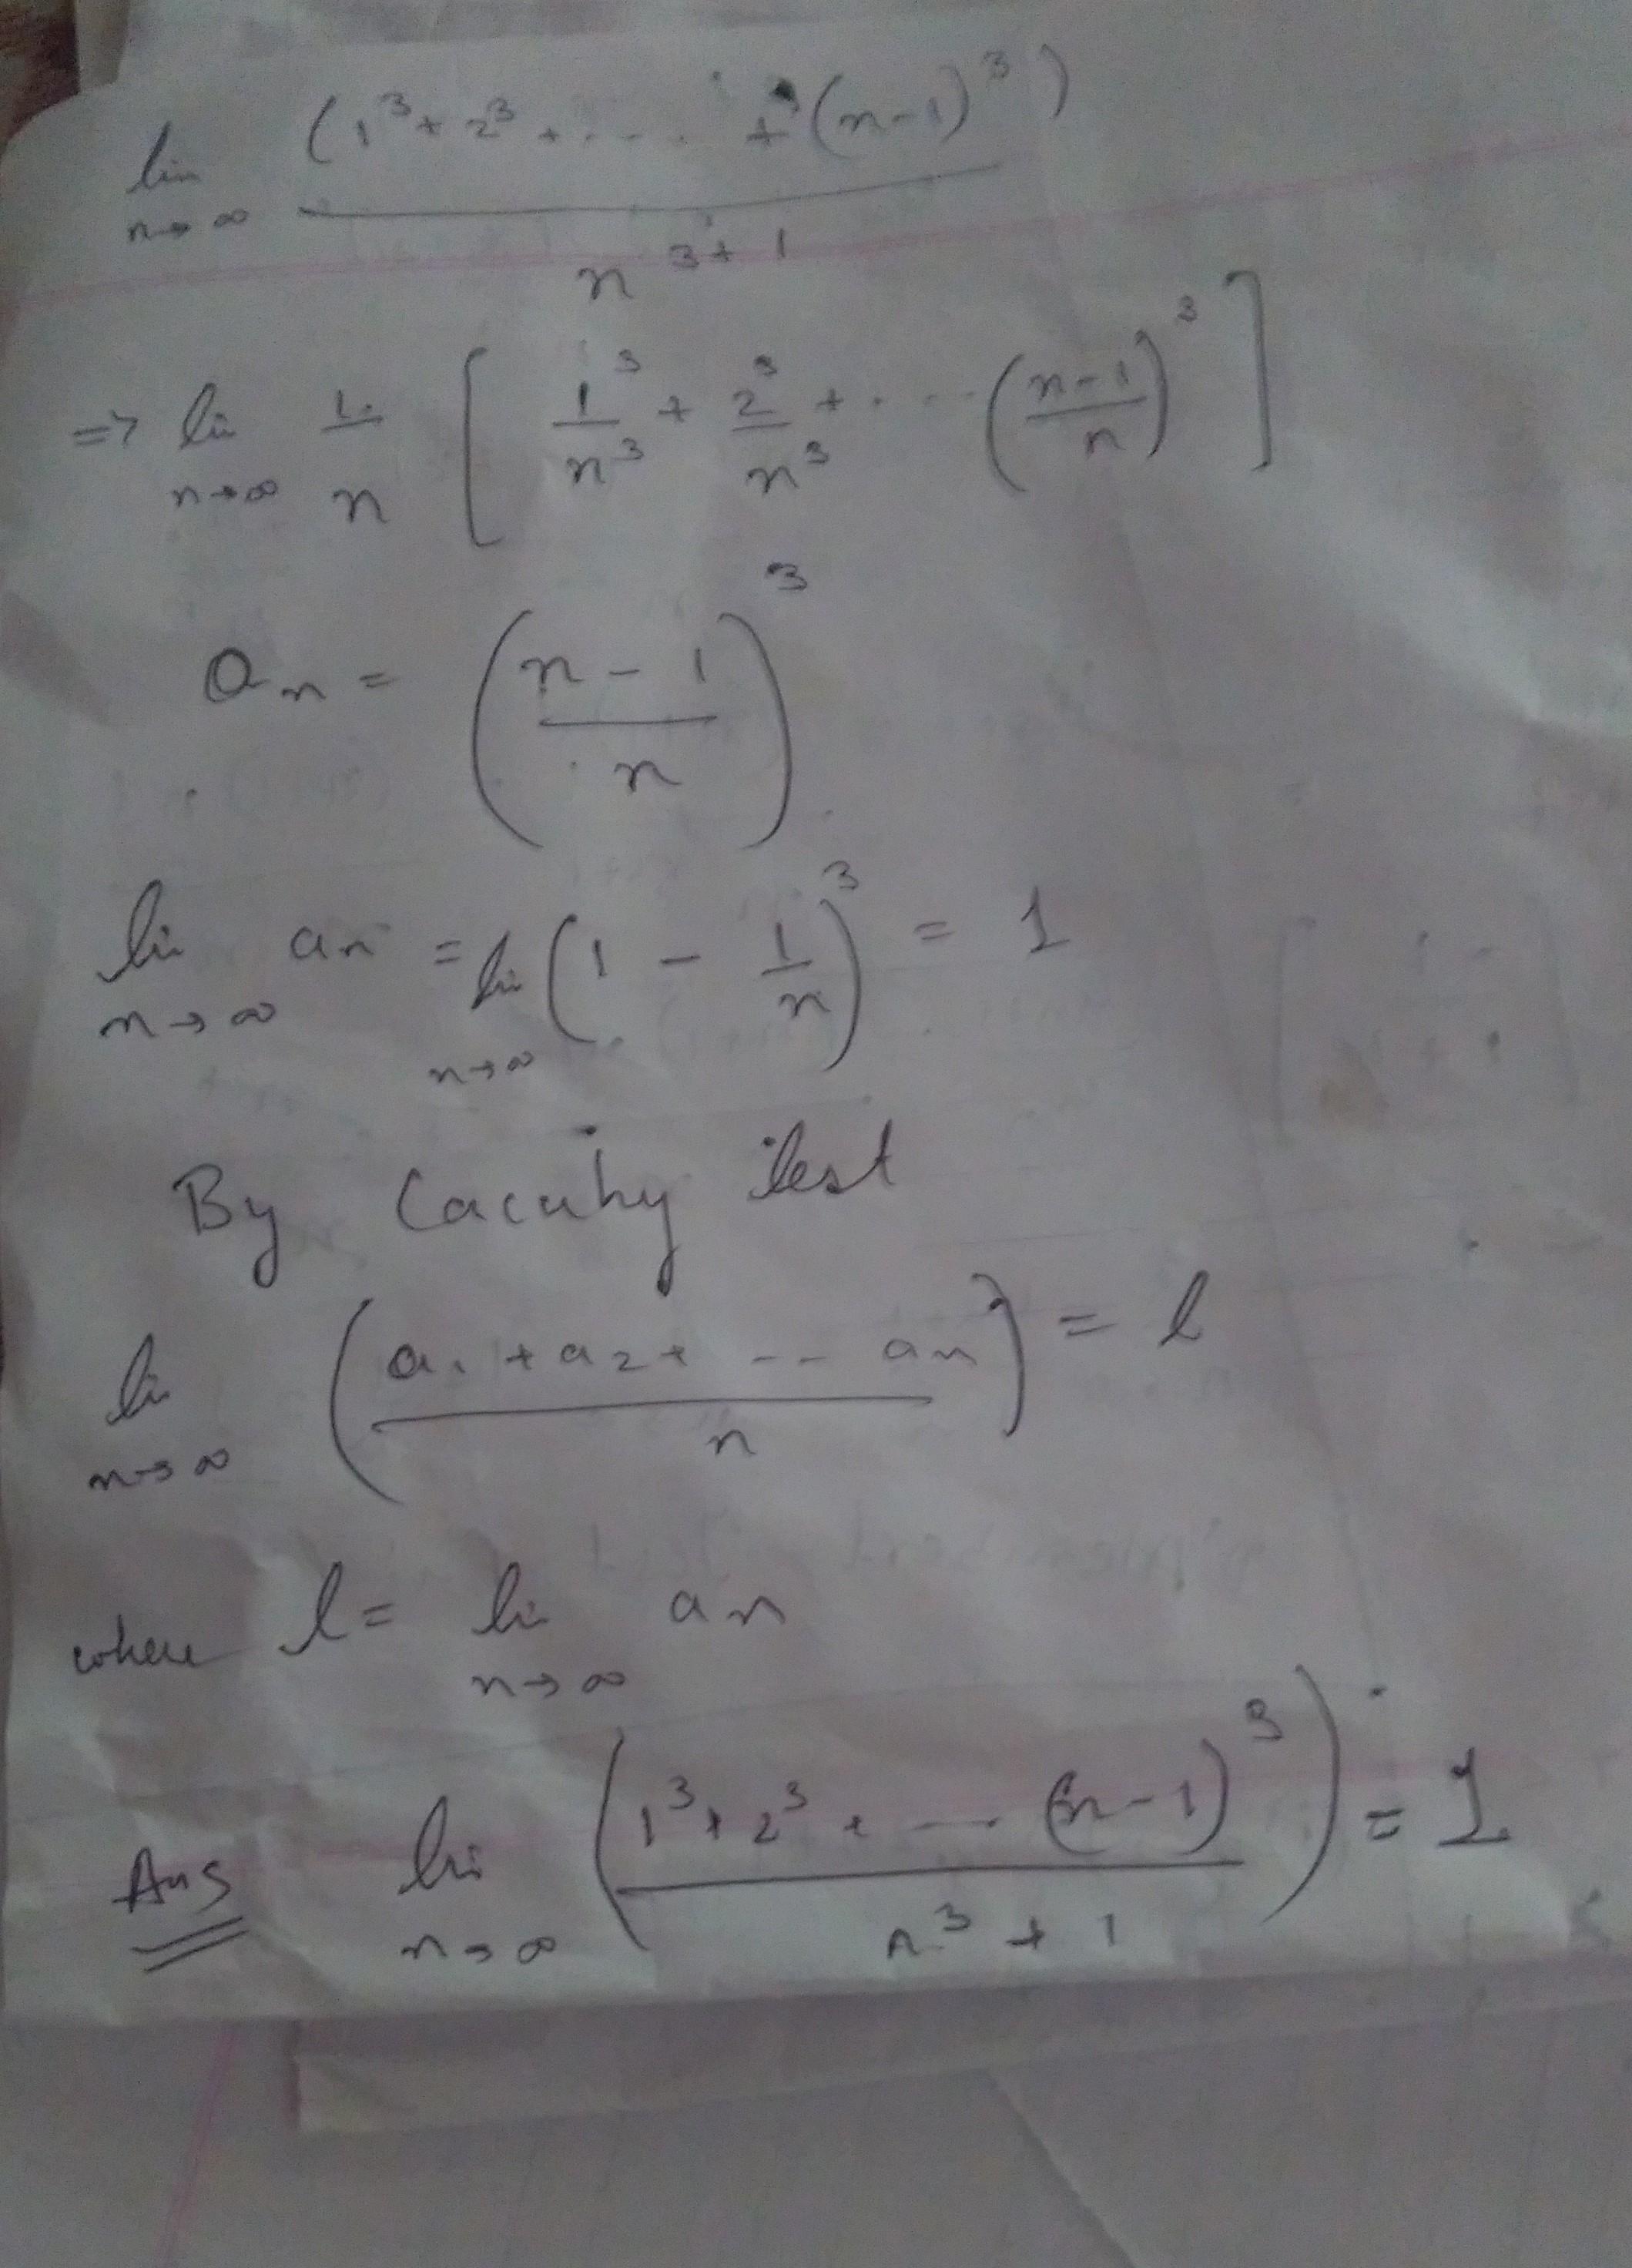 lim n→∞ (1³ + 2³ + .... + (n-1)³) / n^(3+1)
=> li n→∞ 1/n [ 1³/n³ + 2³/n³ + .... ((n-1)/n)³ ]
an = ((n-1)/n)³
li n→∞ an = li n→∞ (1 - 1/n)³ = 1
By Cacuhy test
li n→∞ ((a1 + a2 + -- an)/n) = l
where l = li n→∞ an
Ans li n→∞ ((1³ + 2³ + --- (n-1)³)/(n³ + 1)) = 1